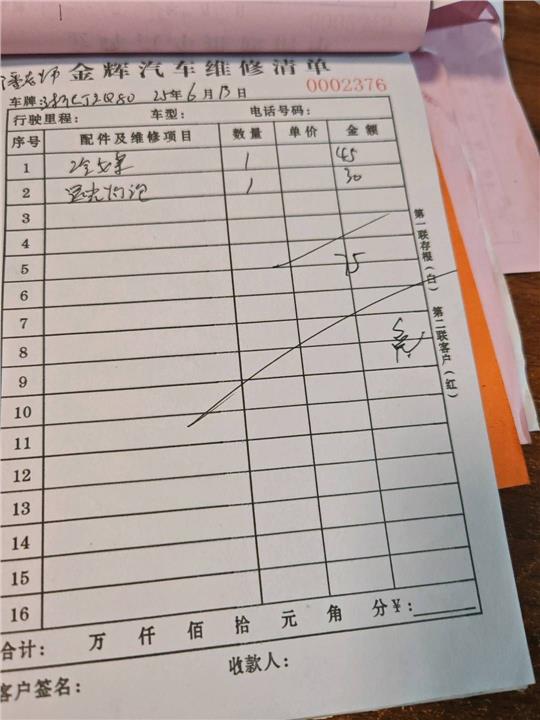 潘老师 金辉汽车维修清单
0002376
车牌: 25年6月13日
行驶里程: 车型: 电话号码:
序号 配件及维修项目 数量 单价 金额
1 冷媒 1 45
2 灯泡 1 30
3
4
5 75
6
7
8
9
10
11
12
13
14
15
16
合计: 万 仟 佰 拾 元 角 分¥:
收款人:
客户签名:
第一联存根(白) 第二联客户(红)